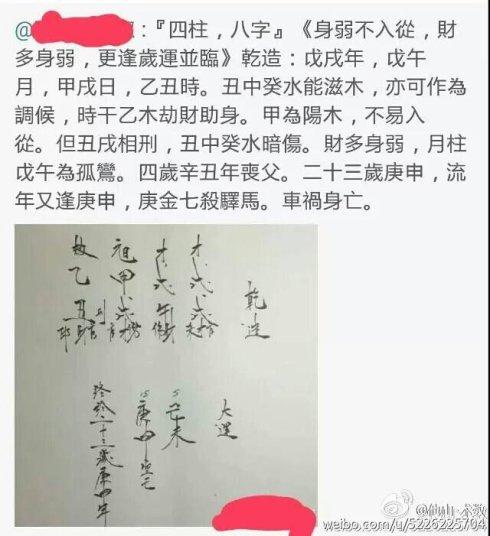 @：『四柱，八字』《身弱不入從，財
多身弱，更逢歲運並臨》乾造：戊戌年，戊午
月，甲戌日，乙丑時。丑中癸水能滋木，亦可作為
調候，時干乙木劫財助身。甲為陽木，不易入
從。但丑戌相刑，丑中癸水暗傷。財多身弱，月柱
戊午為孤鸞。四歲辛丑年喪父。二十三歲庚申，流
年又逢庚申，庚金七殺驛馬。車禍身亡。
乾造
才 戊戌
才 戊午
甲戌
乙丑
大運
5 己未
15 庚申
終於二十三歲庚申年
weibo.com/u/5226225704